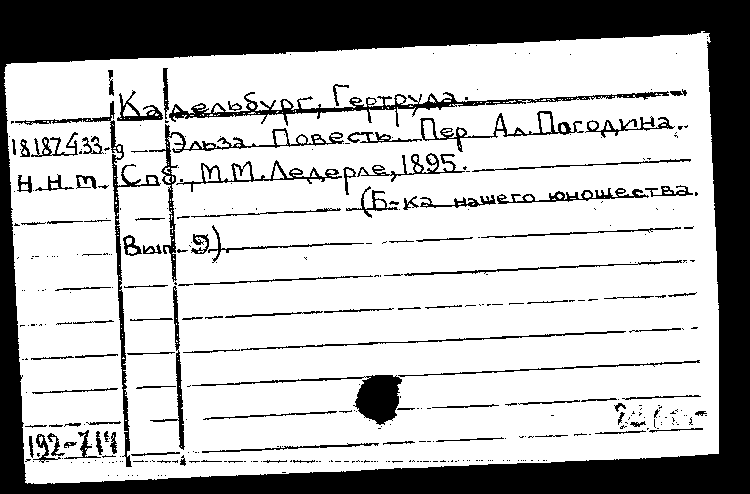 Кадельбург, Гертруда.
18.187.4.33-9 Эльза. Повесть. Пер Ал. Погодина.
Н.Н.Т. Спб., М.М. Ледерле, 1895.
(Б-ка нашего юношества.
Вып. 9).
192-714